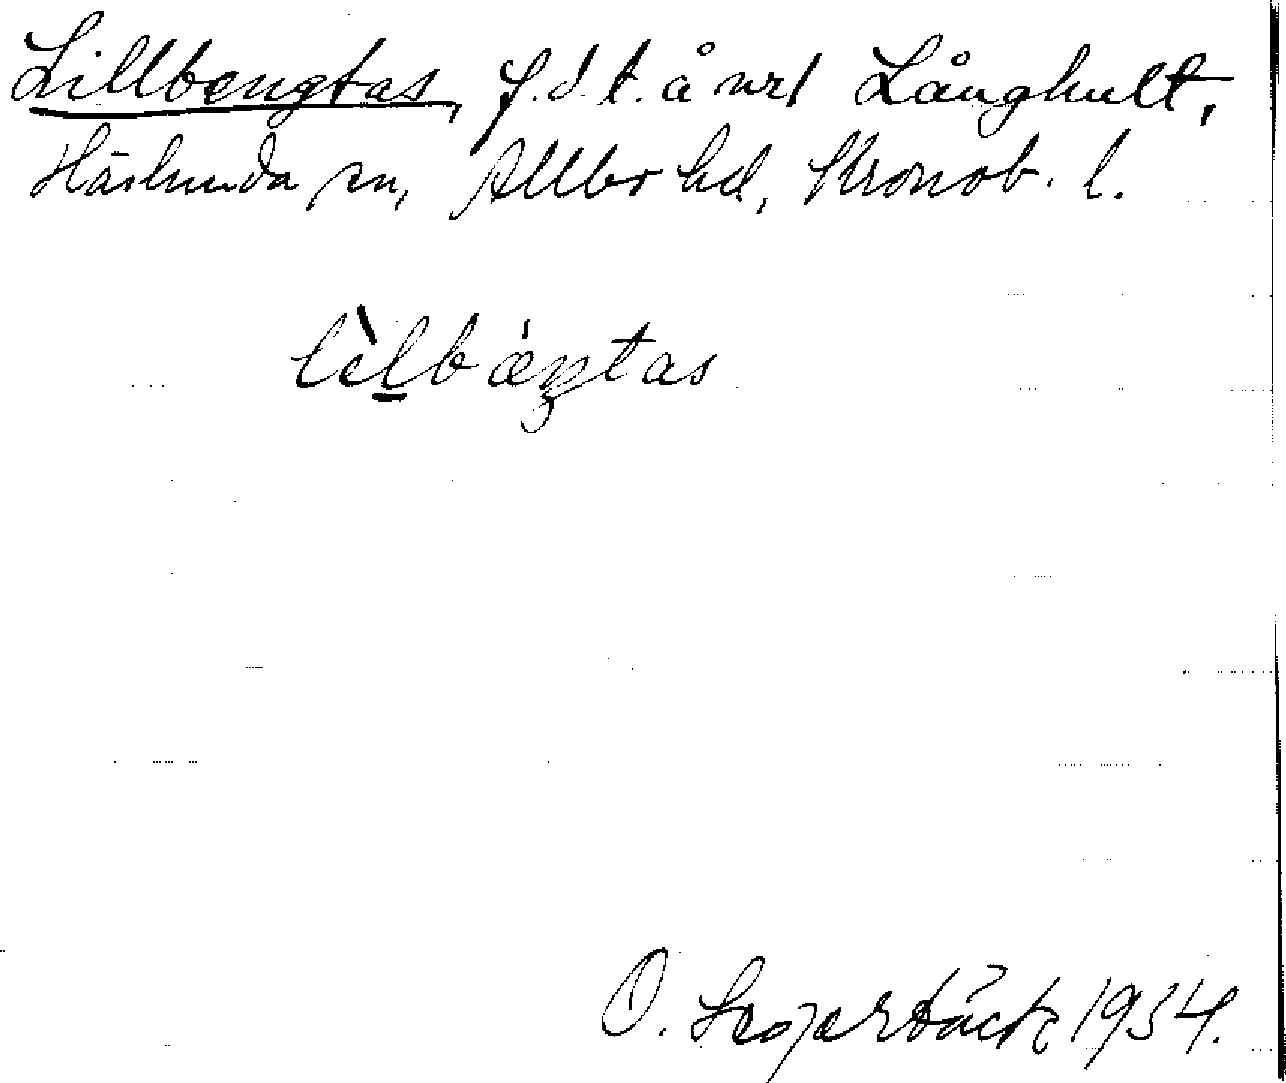 Lillbengtas, f.d.t. å nr 1 Långhult,
Härlunda sn, Allbo hd, Kronob. l.
lìlbæŋtas
O. 1934.